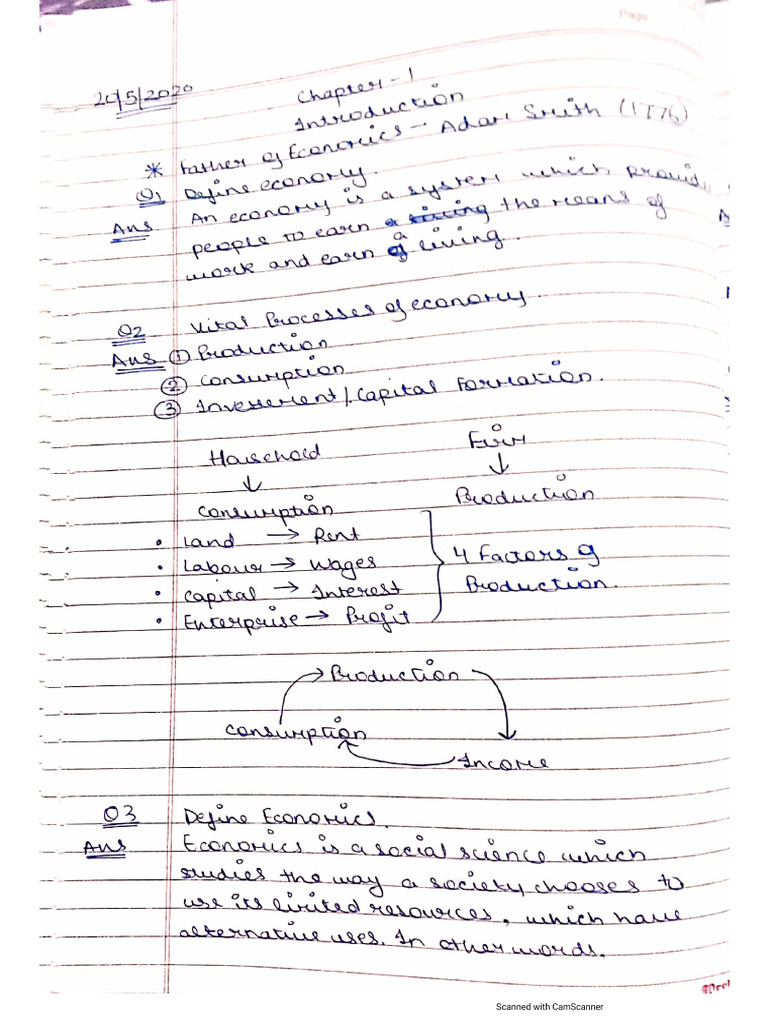 Page
20/5/2020
Chapter - 1
Introduction
* Father of Economics - Adam Smith (1776)
Q1 Define economy.
Ans An economy is a system which provide
people to earn the means of
work and earn a living.
Q2 Vital Processes of economy.
Ans ① Production
② Consumption
③ Investement/Capital Formation.
Household Firm
↓ ↓
Consumption Production
• Land → Rent
• Labour → Wages
• Capital → Interest
• Enterprise → Profit
4 Factors of
Production.
Production
Consumption
Income
Q3 Define Economics.
Ans Economics is a social science which
studies the way a society chooses to
use its limited resources, which have
alternative uses. In other words,
Scanned with CamScanner